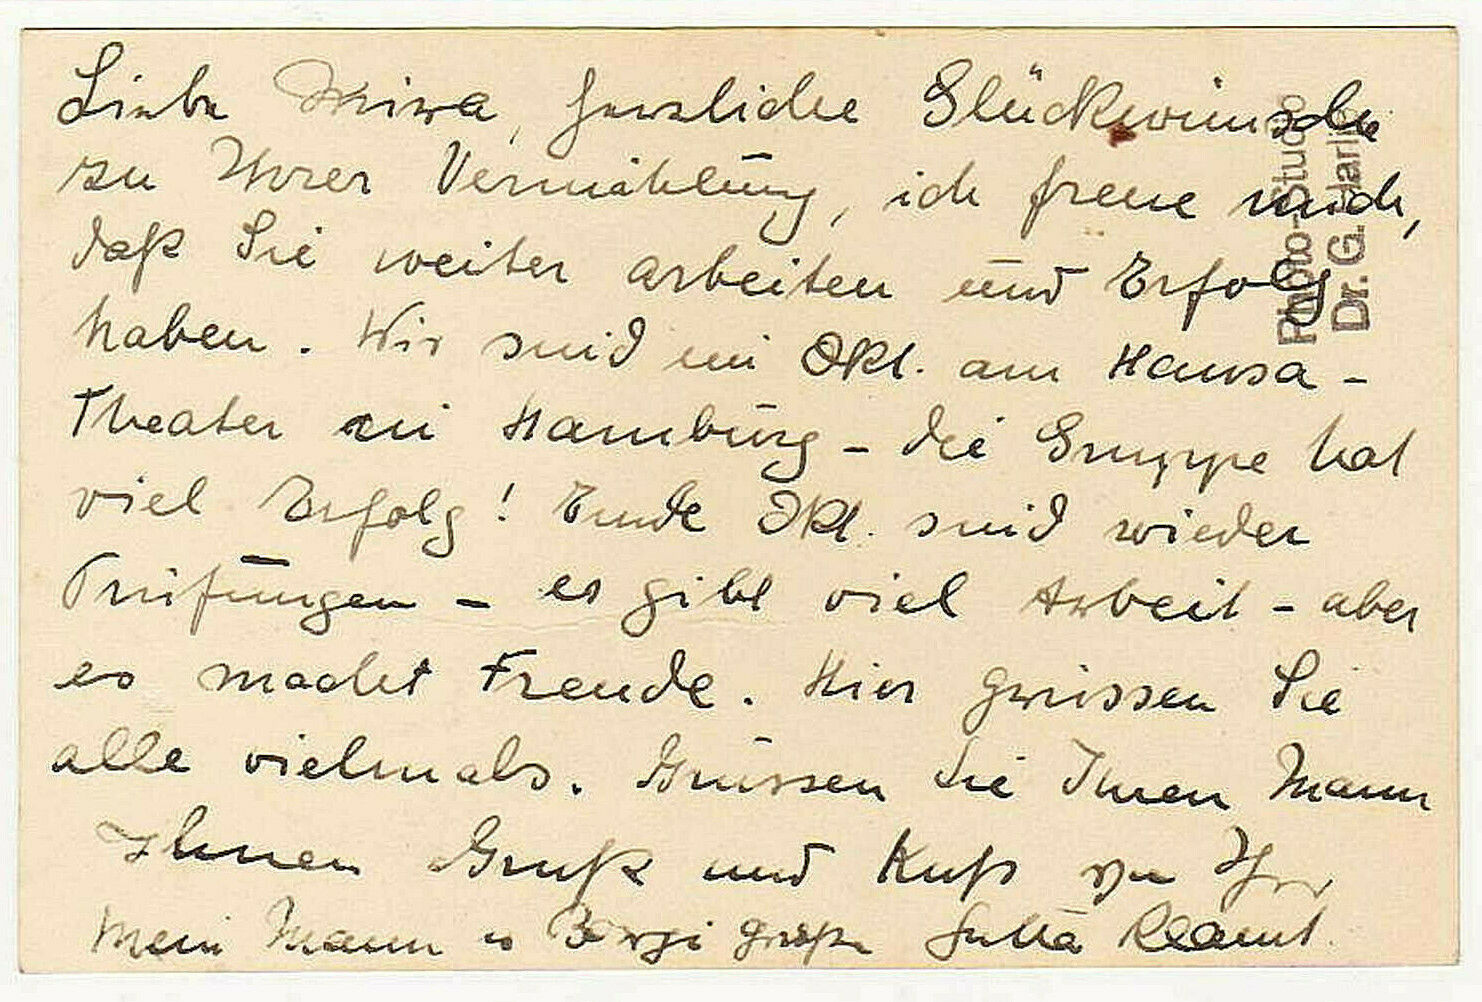 Liebe Miwa, herzliche Glückwünsche
zu Ihrer Vermählung, ich freue mich,
daß Sie weiter arbeiten und Erfolg
haben. Wir sind im Okt. am Hansa-
Theater in Hamburg - die Gruppe hat
viel Erfolg! Ende Okt. sind wieder
Prüfungen - es gibt viel Arbeit - aber
es macht Freude. Hier grüssen Sie
alle vielmals. Grüssen Sie Ihren Mann
Ihnen Gruß und Kuß von Ihrer
Mein Mann u grüßen Jutta Klamt.
Photo-Studio
Dr. G. Harlip